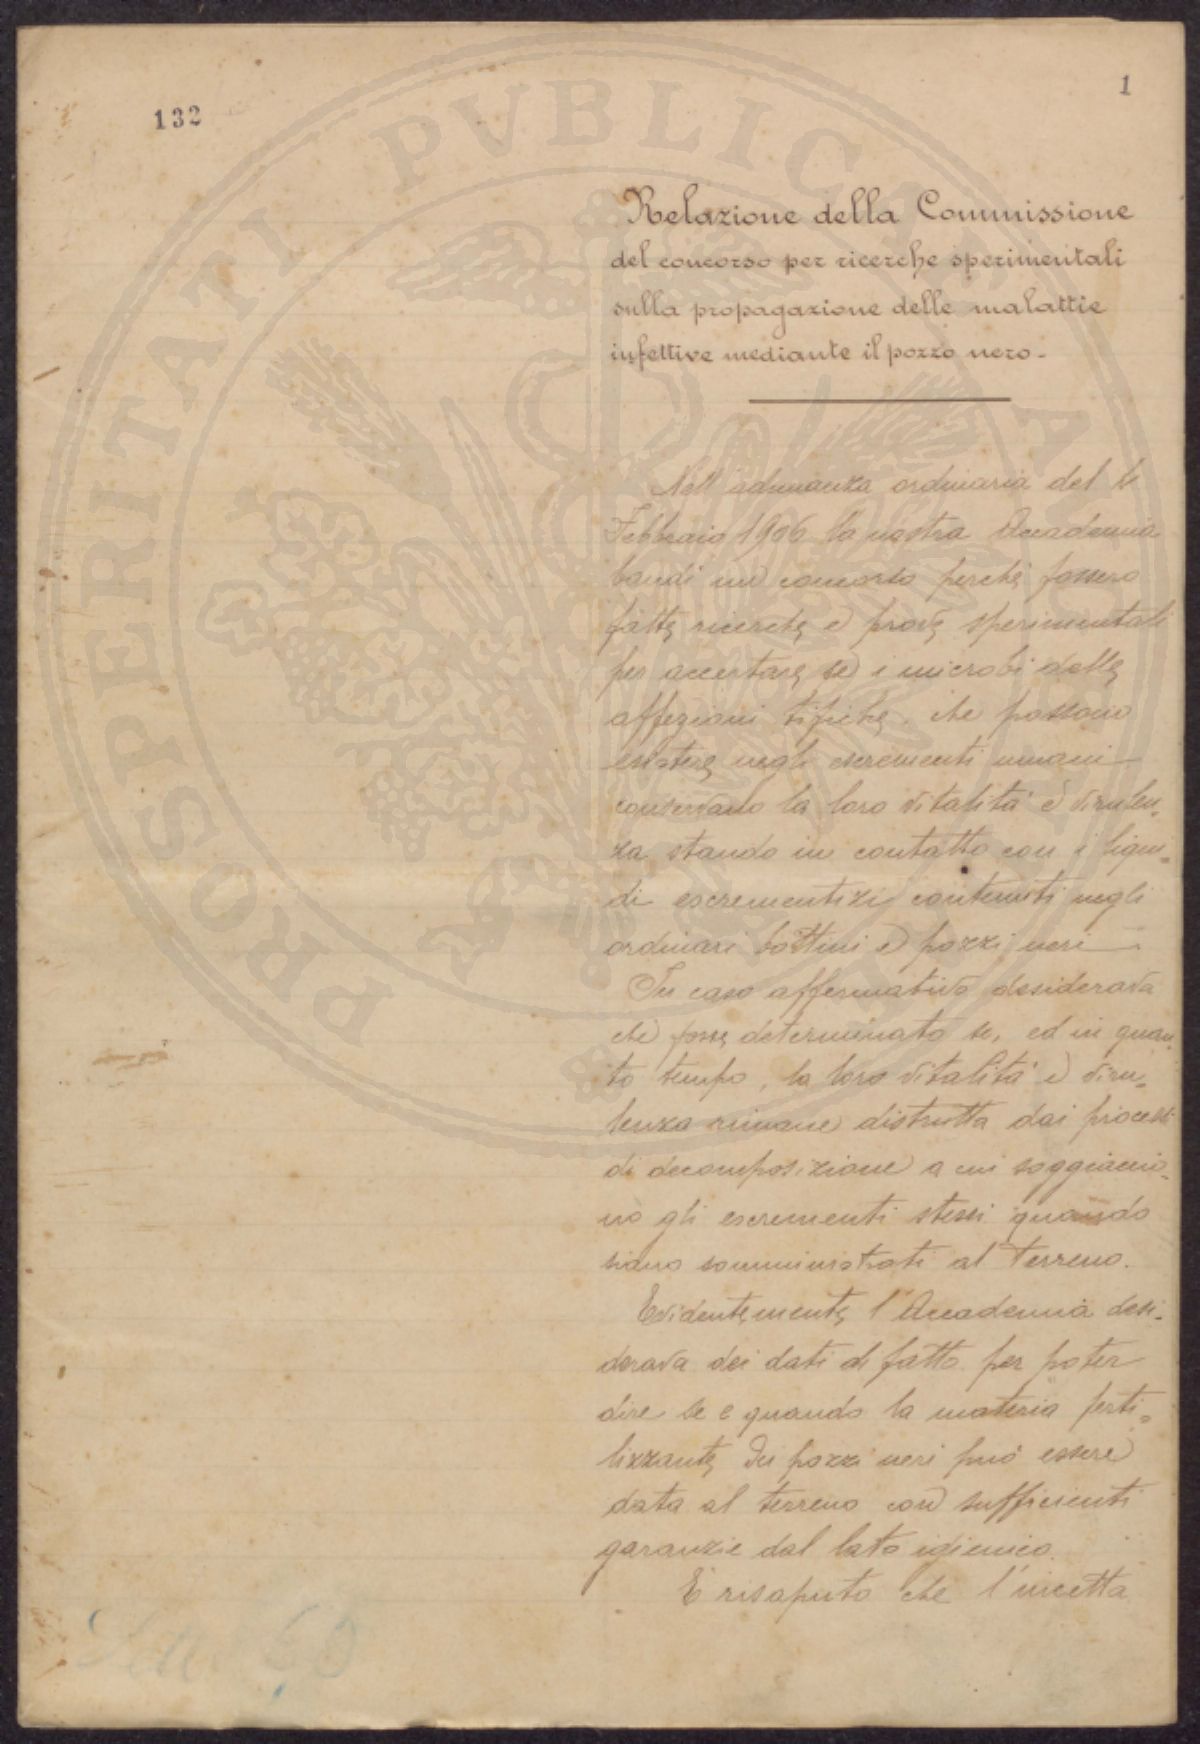 132
1
PROSPERITATI PVBLICAE AVGENDAE
Relazione della Commissione
del concorso per ricerche sperimentali
sulla propagazione delle malattie
infettive mediante il pozzo nero.
Nell'adunanza ordinaria del 4
Febbraio 1906 la nostra Accademia
bandì un concorso perchè fossero
fatte ricerche e prove sperimentali
per accertare se i microbi delle
affezioni tifiche, che possono
esistere negli escrementi umani
conservano la loro vitalità e virulen-
za stando in contatto con i liqui-
di escrementizi contenuti negli
ordinari bottini e pozzi neri.
In caso affermativo desiderava
che fosse determinato se, ed in quan-
to tempo, la loro vitalità e viru-
lenza rimane distrutta dai processi
di decomposizione a cui soggiaccio-
no gli escrementi stessi quando
siano somministrati al terreno.
Evidentemente l'Accademia desi-
derava dei dati di fatto per poter
dire se e quando la materia ferti-
lizzante dei pozzi neri può essere
data al terreno con sufficienti
garanzie dal lato igienico.
E' risaputo che l'incetta